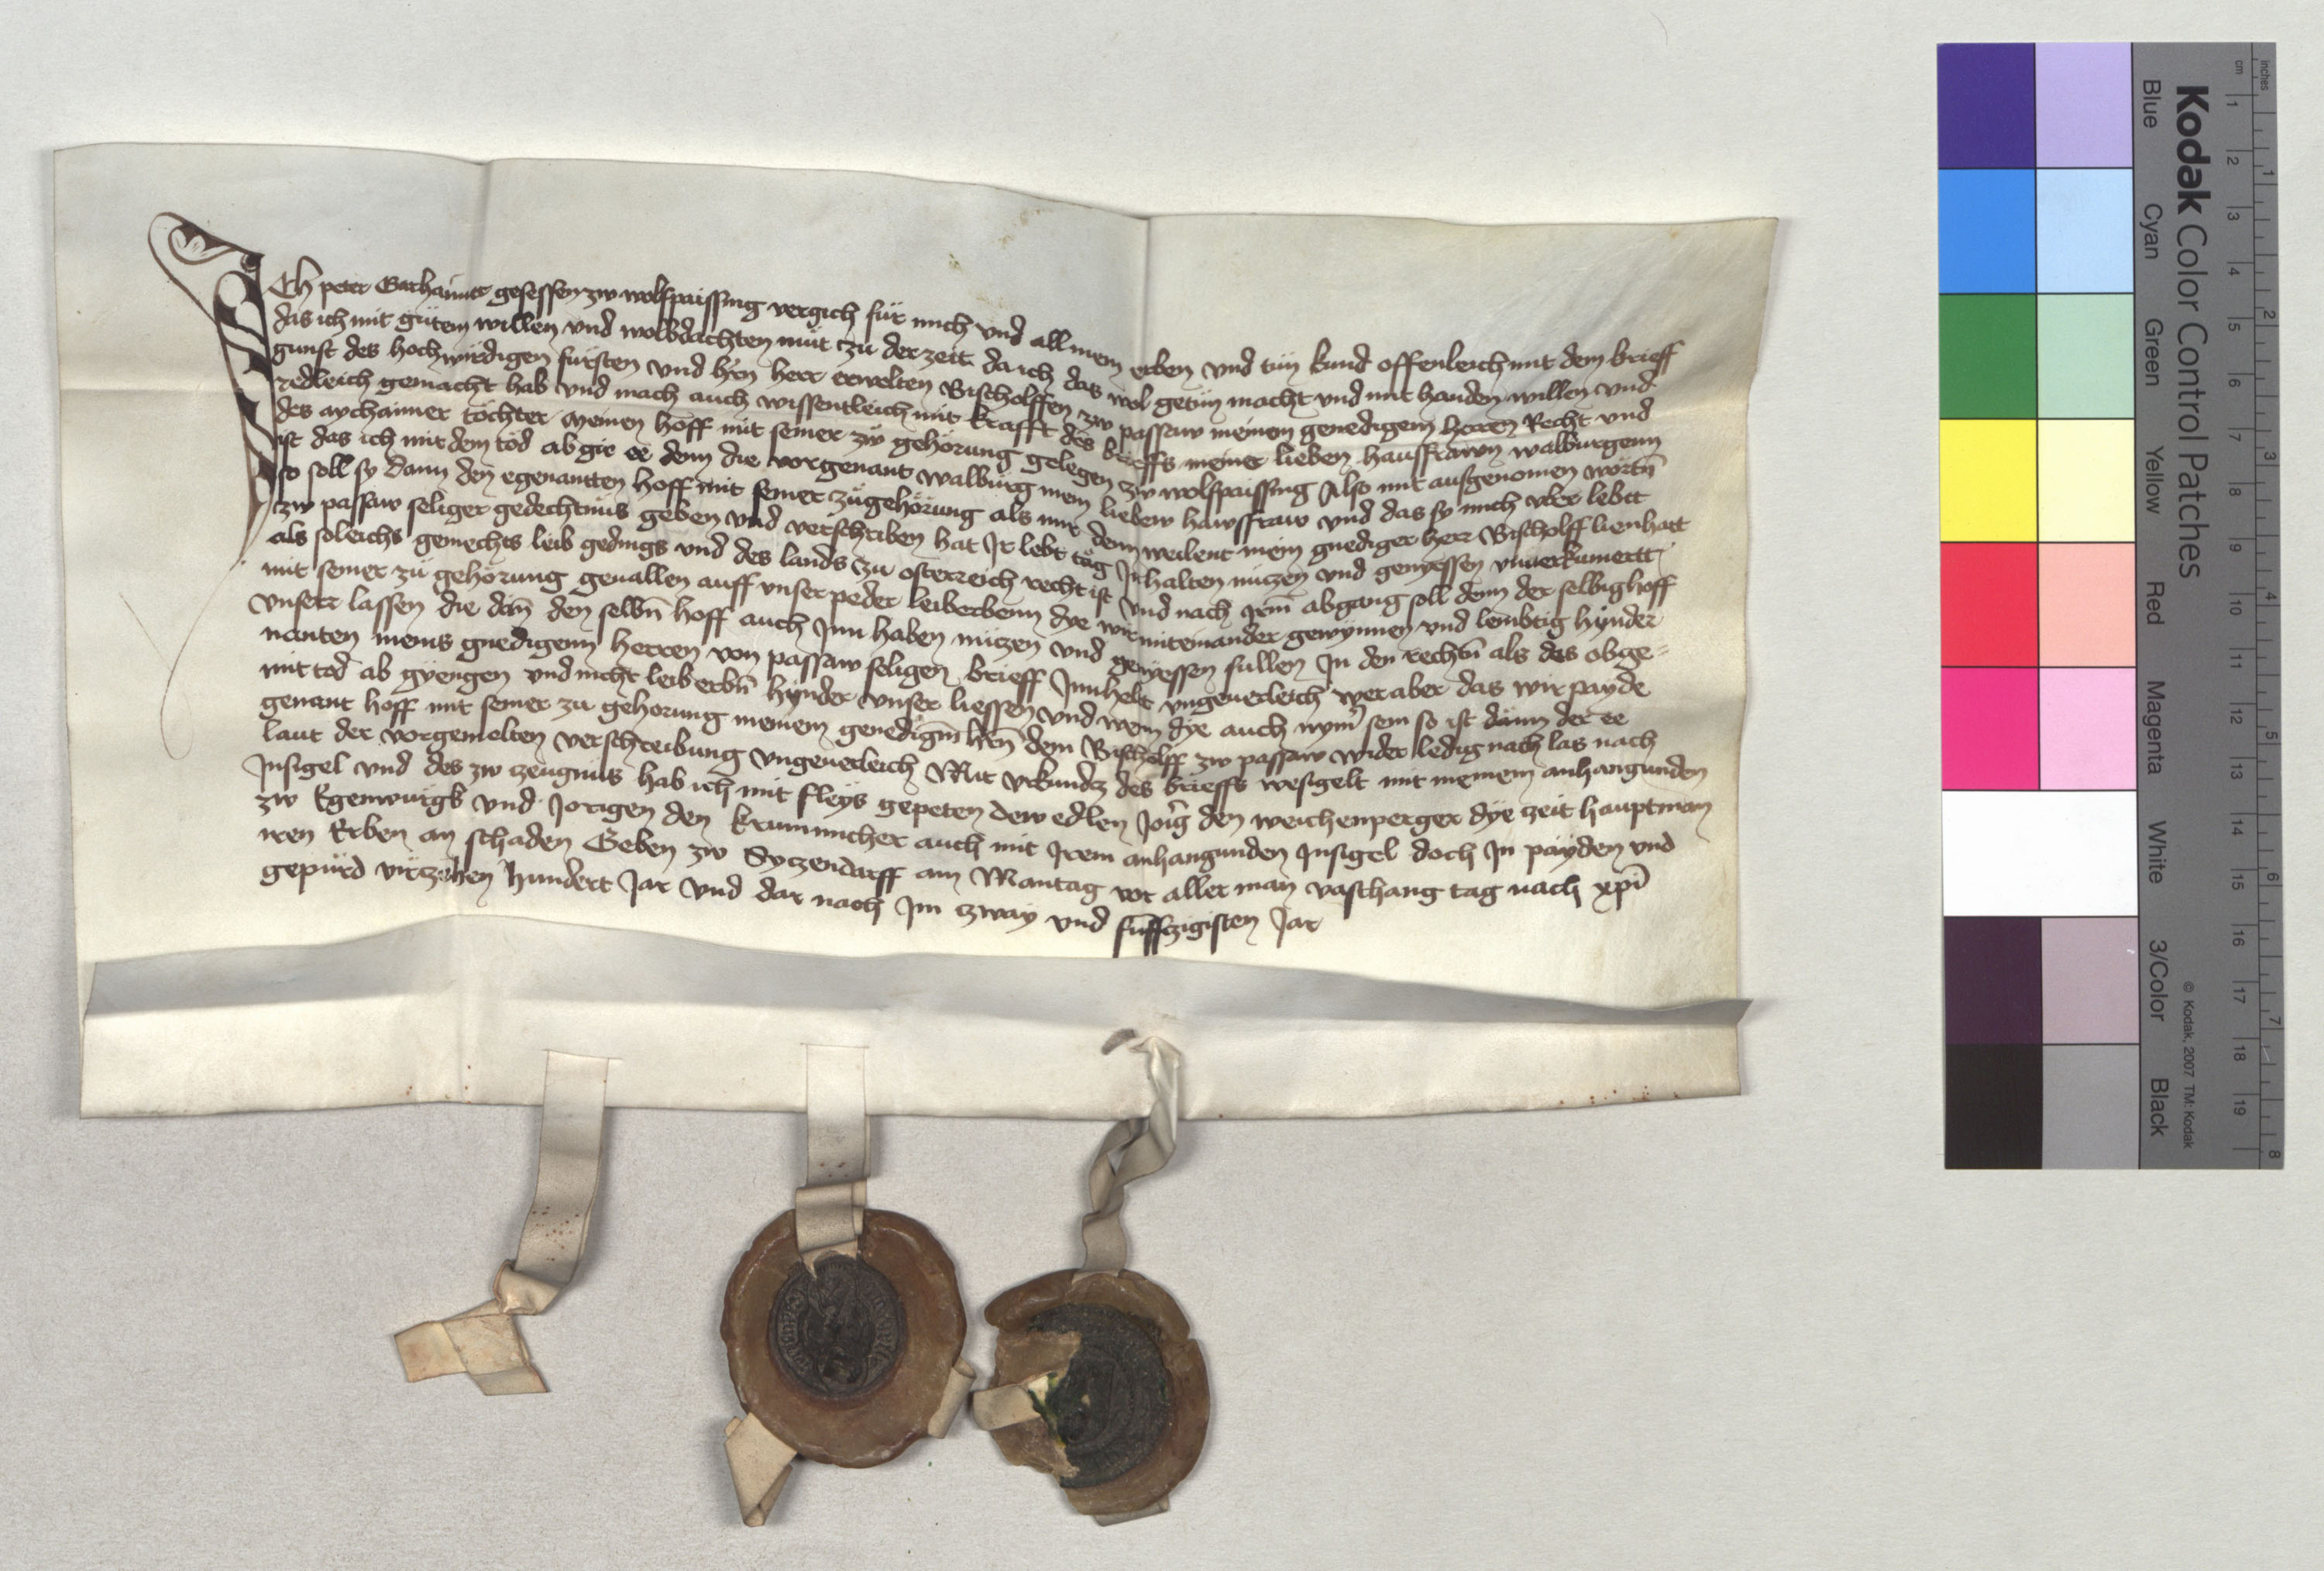 ICh peter Garhaimer gesessen zw wolfpaissing vergich für mich vnd all mein erben vnd tün kund offenleich mit dem brieff
das ich mit gütem willen vnd wolbdachten müt zu der zeit da ich das wol getün macht vnd mit handen willen vnd
gunst des hochwirdigen fürsten vnd hrn herr erwelten Bischolffen zw passaw meinem genedigem herren Recht vnd
redleich gemacht hab vnd mach auch wissentleich mit krafft des brieffs meiner lieben hausfrawn walburgenn
des aychaimer töchter meinen hoff mit seiner zw gehörung gelegen zw wolfpaissing Also mit ausgenomen wortn̄
ist das ich mit dem tod ab gie ee denn die vorgenant walburg mein liebew hawsfraw vnd das sy mich vber lebtt
so soll sy dann den egenantten hoff mit seiner zügehörung als mir denn weilent mein gnediger herr Bischolff lienhart
zw passaw seliger gedechtnüs geben vnd verschriben hat Ir lebt tag Inhalten nützen vnd genyessen vnuerkumertt
als soleichs gemechts leib gedings vnd des lands zu osterreich recht ist vnd nach irm̄ abgang soll denn der selbig hoff
mit seiner zü gehörung geuallen auff vnser peder leiberbenn dye wir miteinander gewynnen vnd lembtig hynder
vnserr lassen die dan̄ den selbn̄ hoff auch Inn haben nützen vnd genyessen sullen In den rechtn̄ als des obge=
nanten meins gnedigenn herren von passaw seligen brieff Innhelt vngeuerleich wer aber das wir payde
mit tod ab gyengen vnd nicht leib erbn̄ hynder vnser liessen vnd wen dye auch nym̄ sein so ist dann der ee
genant hoff mit seiner zu gehorung meinem genedigm̄ hrn̄ dem Bischolff zw passaw wider ledig nach las nach
laut der vorgemelten verschreibung vngeuerleich Mit vrkundz des brieffs wesigelt mit meinem anhangunden
Insigel vnd des zw zeugnüs hab ich mit fleys gepeten dew edlen Jorg den weichenperger dye zeit hauptman
zw Egenwürgk vnd Jorigen den krumicher auch mit Irem anhangunden Insigel doch In payden vnd
iren Erben an schaden Geben zw Syczendarff am Mantag vor aller man vaschang tag nach xp̄i
gepürd virzehen hundert Jar vnd dar nach Im zway vnd fünffzigisten Jar
Kodak Color Control Patches
Blue Cyan Green Yellow Red Magenta White 3/Color Black
© Kodak, 2007 TM: Kodak
cm 1 2 3 4 5 6 7 8 9 10 11 12 13 14 15 16 17 18 19
inches 1 2 3 4 5 6 7 8